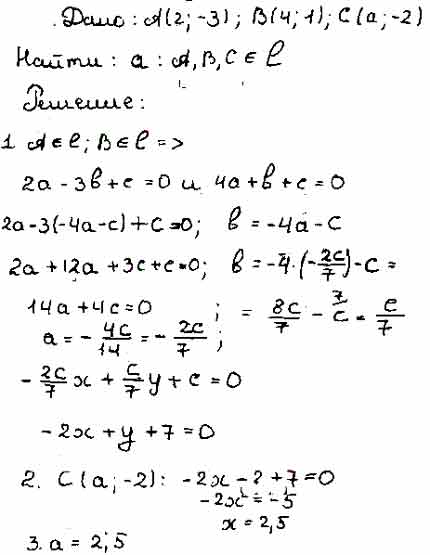 Дано: A(2; -3); B(4; 1); C(a; -2)
Найти: a : A, B, C ∈ l
Решение:
1 A ∈ l; B ∈ l =>
2a - 3b + c = 0 и 4a + b + c = 0
2a - 3(-4a - c) + c = 0; b = -4a - c
2a + 12a + 3c + c = 0; b = -4·(-2c/7) - c =
14a + 4c = 0 ; = 8c/7 - 7/c = c/7
a = -4c/14 = -2c/7 ;
-2c/7 x + c/7 y + c = 0
-2x + y + 7 = 0
2. C(a; -2): -2x - 2 + 7 = 0
-2x = -5
x = 2,5
3. a = 2,5